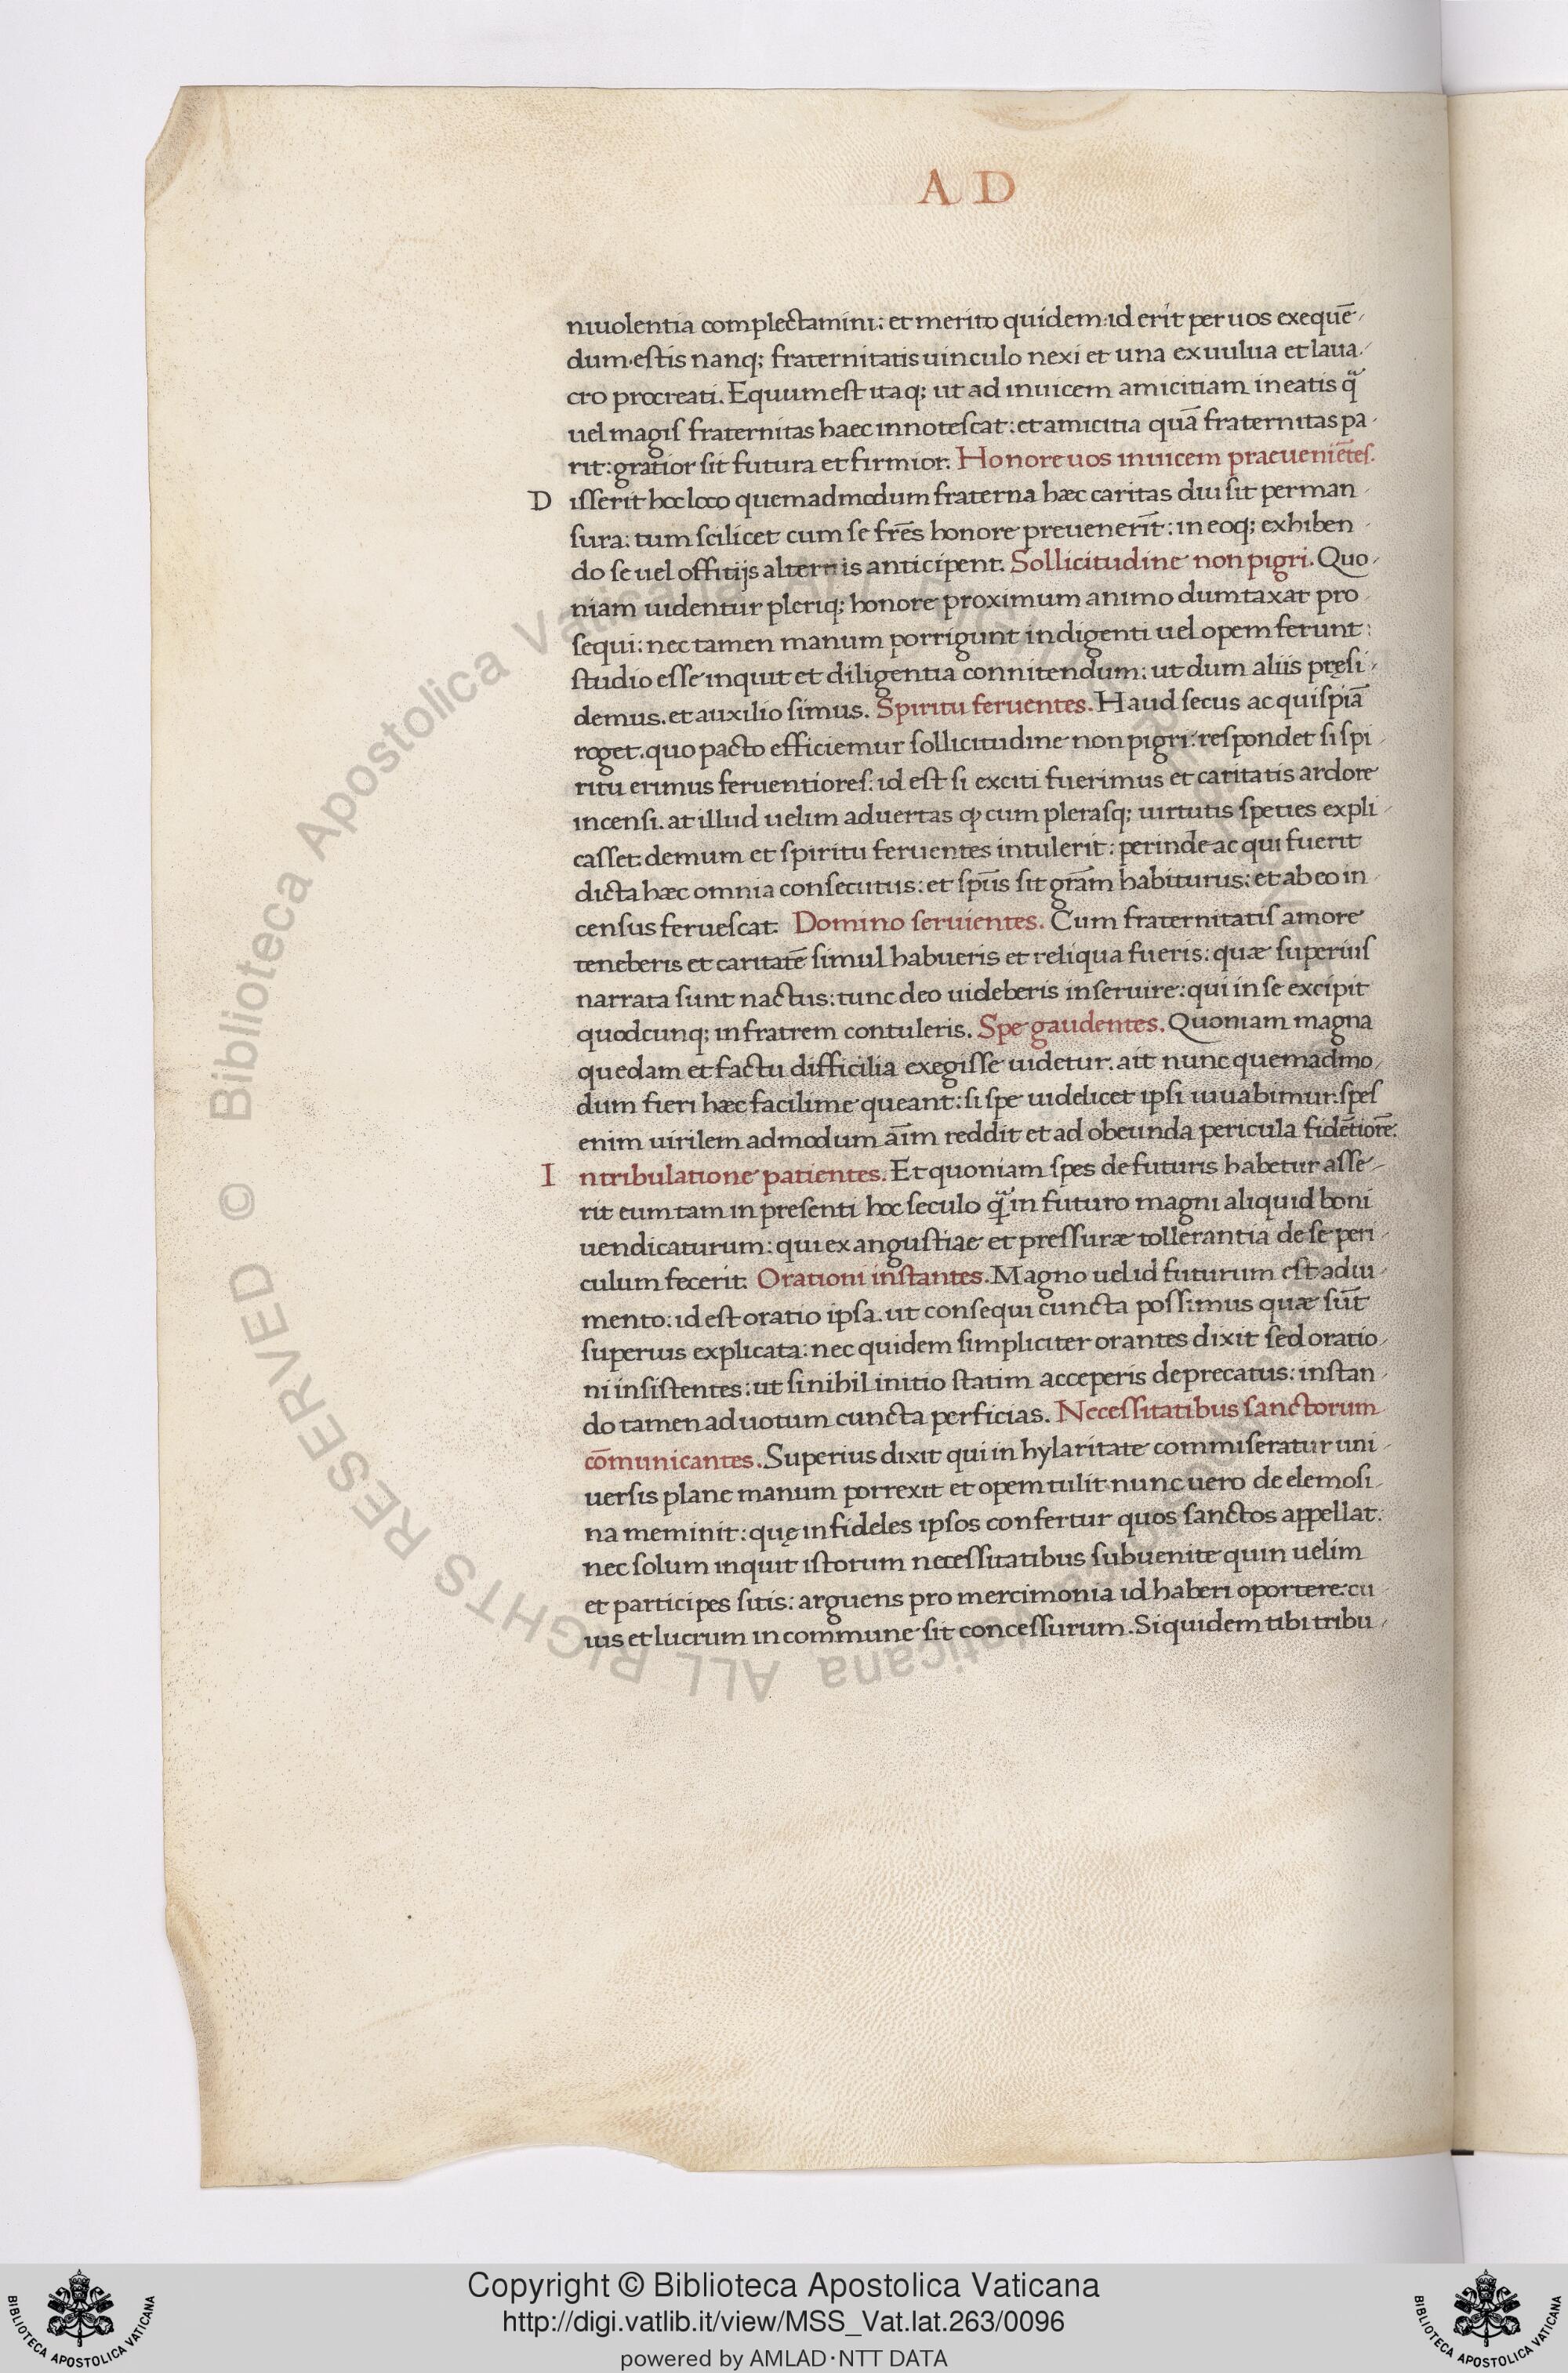 A D
niuolentia complectamini: et merito quidem: id erit per uos exequē-
dum. estis nanq; fraternitatis uinculo nexi et una ex uulua et laua-
cro procreati. Equum est itaq; ut ad inuicem amicitiam ineatis q̄
uel magiſ fraternitas haec innoteſcat: et amicitia quā fraternitas pa-
rit: gratior ſit futura et firmior. Honore uos inuicem praeueniēteſ.
D iſſerit hoc loco quemadmodum fraterna hæc caritas diu ſit perman-
ſura: tum ſcilicet cum ſe fr̄es honore preuenerīt: in eoq; exhiben-
do ſe uel offitijs alternis anticipent. Sollicitudine non pigri. Quo-
niam uidentur pleriq; honore proximum animo dumtaxat pro-
ſequi: nec tamen manum porrigunt indigenti uel opem ferunt:
ſtudio eſſe inquit et diligentia connitendum: ut dum aliis pręſi-
demus. et auxilio ſimus. Spiritu feruentes. Haud ſecus ac quiſpiā
roget. quo pacto efficiemur ſollicitudine non pigri: reſpondet ſi ſpi-
ritu erimus feruentioreſ: id eſt ſi exciti fuerimus et caritatis ardore
incenſi. at illud uelim aduertas ꝙ cum pleraſq; uirtutis ſpeties expli-
caſſet: demum et ſpiritu feruentes intulerit: perinde ac qui fuerit
dicta hæc omnia conſecutus: et ſpūs ſit grām habiturus: et ab eo in-
cenſus ferueſcat. Domino ſeruientes. Cum fraternitatiſ amore
teneberis et caritatē ſimul habueris et reliqua fueris: quæ ſuperiuſ
narrata ſunt nactus: tunc deo uideberis inſeruire: qui in ſe excipit
quodcunq; in fratrem contuleris. Spe gaudentes. Quoniam magna
quedam et factu difficilia exegiſſe uidetur. ait nunc quemadmo-
dum fieri hæc facilime queant: ſi ſpe uidelicet ipſi iuuabimur. ſpeſ
enim uirilem admodum aīm reddit et ad obeunda pericula fidētiorē.
I n tribulatione patientes. Et quoniam ſpes de futuris habetur aſſe-
rit eum tam in preſenti hoc ſeculo q̄ in futuro magni aliquid boni
uendicaturum: qui ex anguſtiae et preſſuræ tollerantia de ſe peri-
culum fecerit. Orationi inſtantes. Magno uel id futurum eſt adiu-
mento: id eſt oratio ipſa. ut conſequi cuncta poſſimus quæ ſūt
ſuperius explicata: nec quidem ſimpliciter orantes dixit ſed oratio-
ni inſiſtentes: ut ſi nihil initio ſtatim acceperis deprecatus: inſtan-
do tamen ad uotum cuncta perficias. Neceſſitatibus ſanctorum
cōmunicantes. Superius dixit qui in hylaritate commiſeratur uni-
uerſis plane manum porrexit et opem tulit. nunc uero de elemoſi-
na meminit: quę in fideles ipſos confertur quos ſanctos appellat:
nec ſolum inquit iſtorum neceſſitatibus ſubuenite quin uelim
et participes ſitis: arguens pro mercimonia id haberi oportere: cu-
ius et lucrum in commune ſit conceſſurum. Siquidem tibi tribu-
© Biblioteca Apostolica Vaticana ALL RIGHTS RESERVED
Copyright © Biblioteca Apostolica Vaticana
http://digi.vatlib.it/view/MSS_Vat.lat.263/0096
powered by AMLAD·NTT DATA
BIBLIOTECA APOSTOLICA VATICANA
BIBLIOTECA APOSTOLICA VATICANA